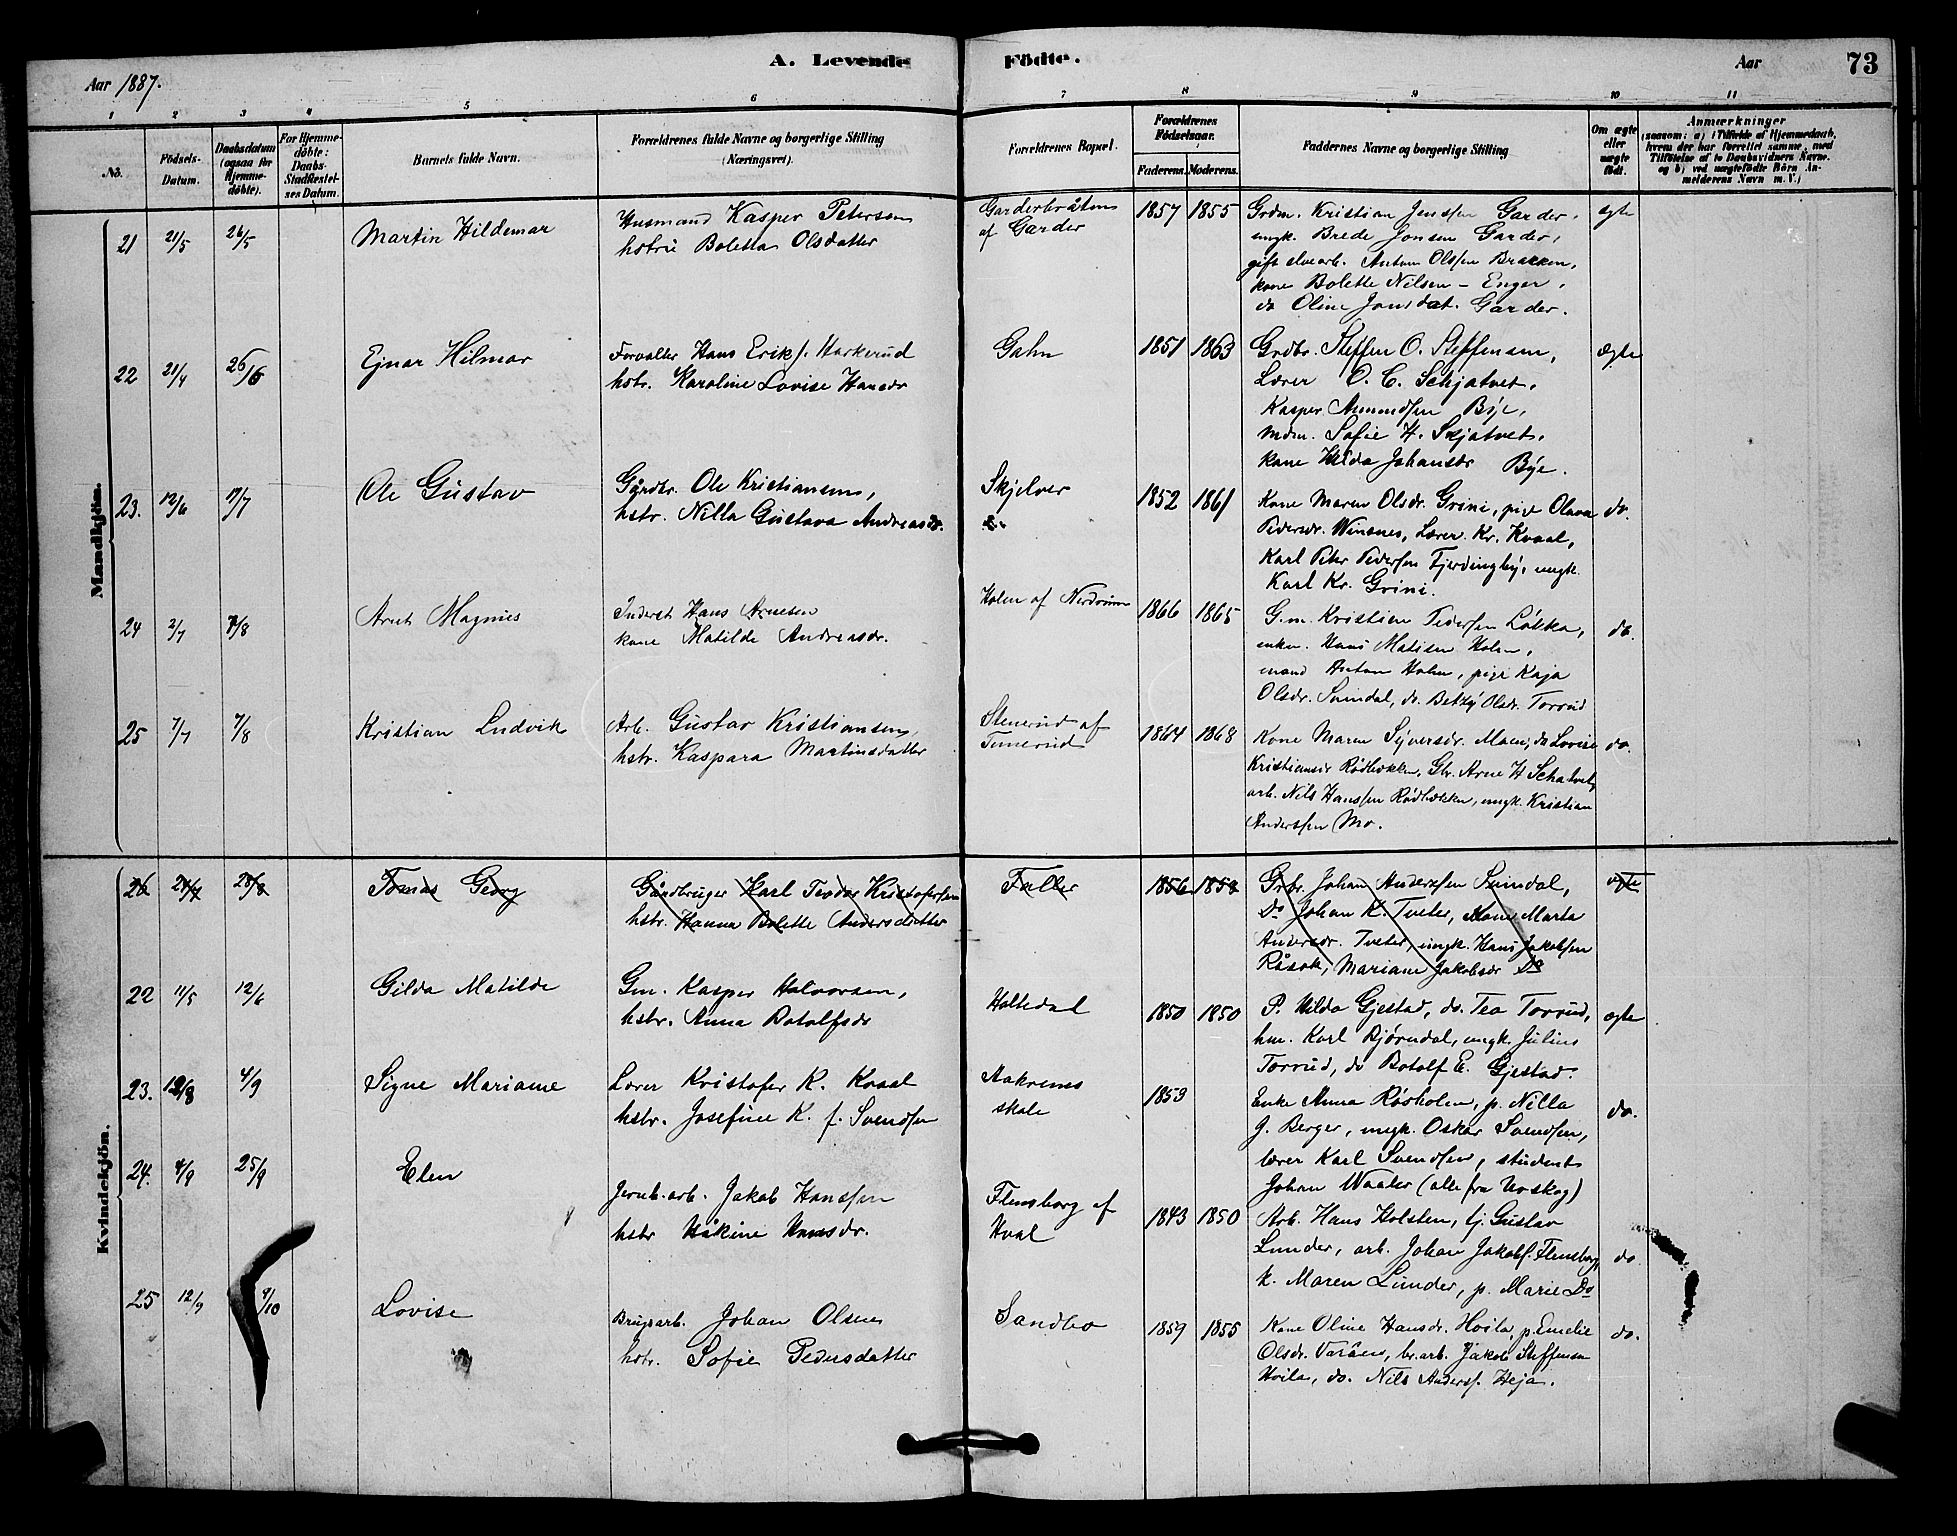 Aar 1887.
A. Levende Födte.
Aar
73
1 2 3 4 5 6 7 8 9 10 11
No.
Födsels-Datum.
Daabsdatum (ogsaa for Hjemme-döbte).
For Hjemme-döbte: Daabs Stadfæstel-ses Datum.
Barnets fulde Navn.
Forældrenes fulde Navne og borgerlige Stilling (Næringsvei).
Forældrenes Bopæl.
Forældrenes Födselsaar.
Faderens. Moderens.
Faddernes Navne og borgerlige Stilling
Om ægte eller uægte födt.
Anmærkninger
(saasom: a) i Tilfælde af Hjemmedaab, hvem der har forrettet samme, med Tilföielse af to Daabsvidners Navne, og b) ved uægtefödte Börn An-melderens Navn m. V.)
Mandkjön.
21 21/5 26/5 Martin Hildemar
Husmand Kasper Petersen
hstru Boletta Olsdatter
Garderbråten
af Garder
1857 1855
Grdm. Kristian Jenssen Garder,
ungk. Brede Jonsen Garder,
gift elvearb. Anton Olssen Brækken,
kone Bolette Nilsen - Enger,
do Oline Jonsdat. Garder.
ægte
22 21/4 26/6 Ejnar Hilmar
Forvalter Hans Eriks. Harkerud
hstr. Karoline Lovise Hansdr
Gahn
1851 1863
Grdbr. Steffen O. Steffensen,
Lærer O. C. Schjatvet,
Kasper Amundsen Bÿe,
Mdm. Sofie H. Skjatvet,
kone Hilda Johansdr Bÿe.
ægte
23. 12/6 17/7 Ole Gustav
Gårdbr. Ole Kristiansen,
hstr. Nilla Gustava Andreasdr.
Skjelver
1852 1861
Kone Maren Olsdr. Grini, pige Olava
Pedersdr. Winsnes, Lærer Kr. Kvaal,
Karl Peter Pedersen Fjerdingby, ungk.
Karl Kr. Grini.
do.
24 2/7 7/8 Arnt Magnus
Inderst Hans Arnesen
kone Matilde Andreasdr.
Holm af Nerdrum
1866 1865
G.m. Kristian Pedersen Løkka,
enkem. Hans Matisen Holm,
mand Anton Holm, pige Kaja
Olsdr. Suindal, do. Betzÿ Olsdr. Torrud
do.
25 7/7 7/8 Kristian Ludvik
Arb. Gustav Kristiansen,
hstr. Kaspara Martinsdatter
Stenerud af
1864 1868
Kone Maren Syversdr. Moen, do Lovise
Kristiansdr Rødbækken, Gbr. Arne H Schatvet,
arb. Nils Hanssen Rødbækken, ungk. Kristian
Anderssen Mo.
do.
Kvindekjön.
26 28/8 Tomas Georg
Gårdbruger Karl Teodor Kristofersen
hstr. Hanna Bolette Andersdatter
Faller
1856
Grbr. Johan Anderssen Suindal,
Do Johan K. Tveter, Kone Marta
Andersdr. Tveter, ungk. Hans Jakobsen
Råsok, Mariane Jakobsdr Do
ægte
22 11/5 12/6 Gilda Matilde
Gm. Kasper Halvorsen,
hstr. Anna Botolfsdr
Holtedal
1850 1850
P. Hilda Gjestad, do. Tea Torrud,
hm. Karl Bjørndal, ungk. Julius
Torrud, do Botolf E. Gjestad.
ægte
23. 4/9 Signe Mariane
Lærer Kristofer K. Kvaal
hstr. Josefine K. f. Svendsen
Aakrenes
skole
1853
Enke Anna Røsholm, p. Nilla
J. Berger, ungk. Oskar Svendsen,
lærer Karl Svendsen, student
Johan Waaler (alle fra Urskog)
do.
24. 4/9 25/9 Elen
Jernb. arb. Jakob Hanssen
hstr Håkine Hansdr.
Flensborg af
Hval
1843 1850
Arb. Hans Holsten, tj. Gustav
Lunder, arb. Johan Jakobs. Flensborg,
k. Maren Lunder, p. Marie Do
do
25 12/9 9/10 Lovise
Brugsarb. Johan Olsen
hstr. Sofie Pedersdatter
Sandbo
1859 1855
Kone Oline Hansdr. Hvila, p. Emelie
Olsdr. Varåen, br.arb. Jakob Steffensen
Hvila, do. Nils Anders. Heja.
do.